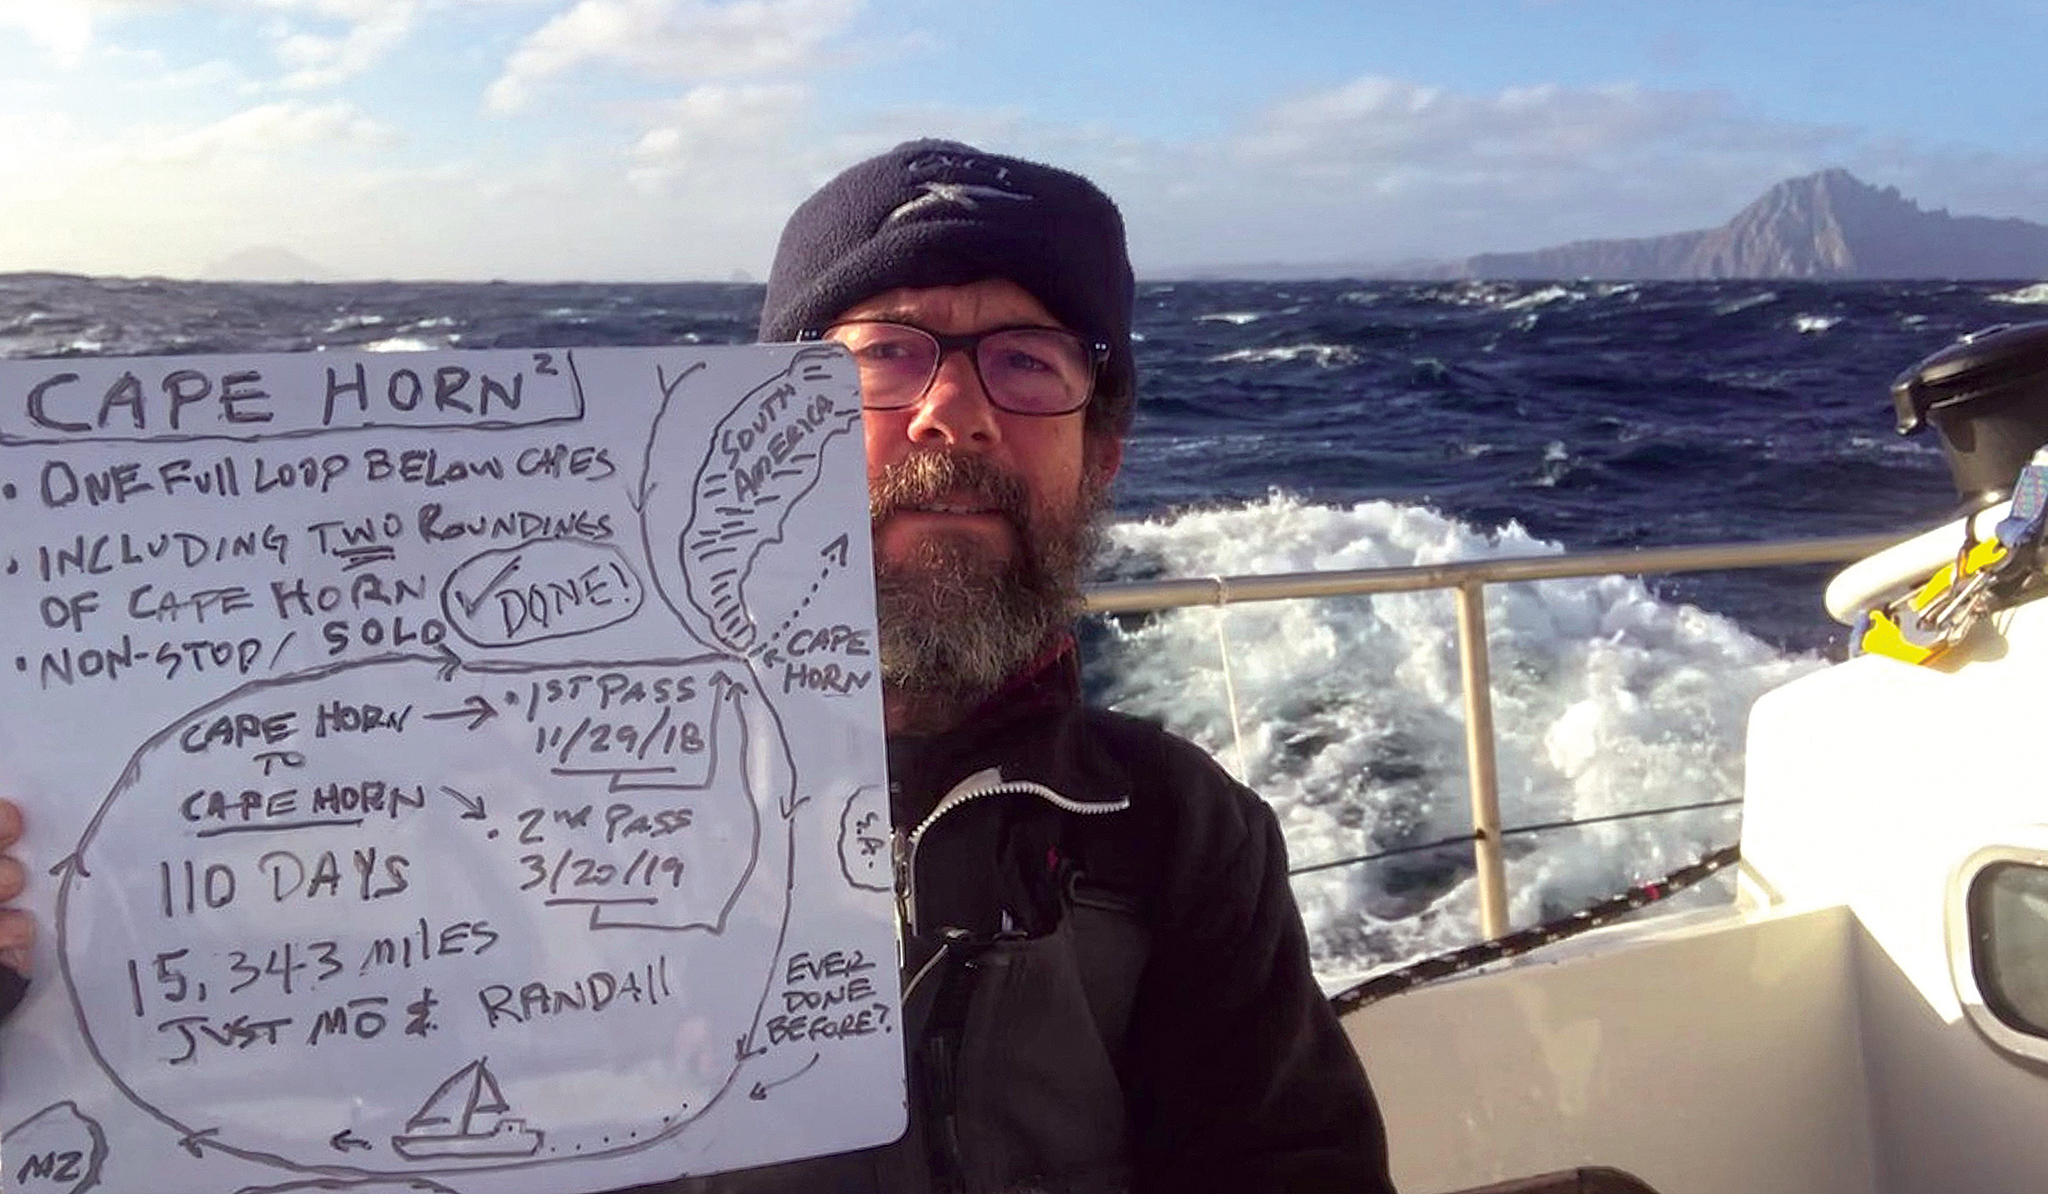 CAPE HORN²
• ONE FULL LOOP BELOW CAPES
• INCLUDING TWO ROUNDINGS
OF CAPE HORN
• NON-STOP / SOLO
✓ DONE!
SOUTH
AMERICA
CAPE
HORN
CAPE HORN → • 1ST PASS
11/29/18
TO
CAPE HORN → • 2ND PASS
3/20/19
110 DAYS
15,343 MILES
JUST MŌ & RANDALL
EVER
DONE
BEFORE?
NZ